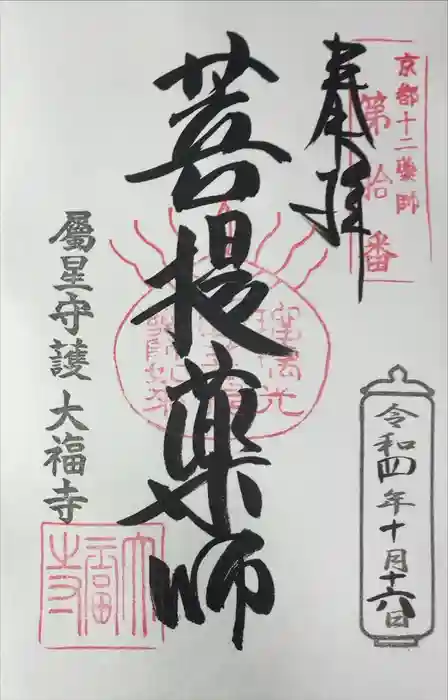 京都十二薬師
第拾番
奉拝
菩提薬師
瑠璃光
屬星守護 大福寺
大福寺
令和四年十月十六日